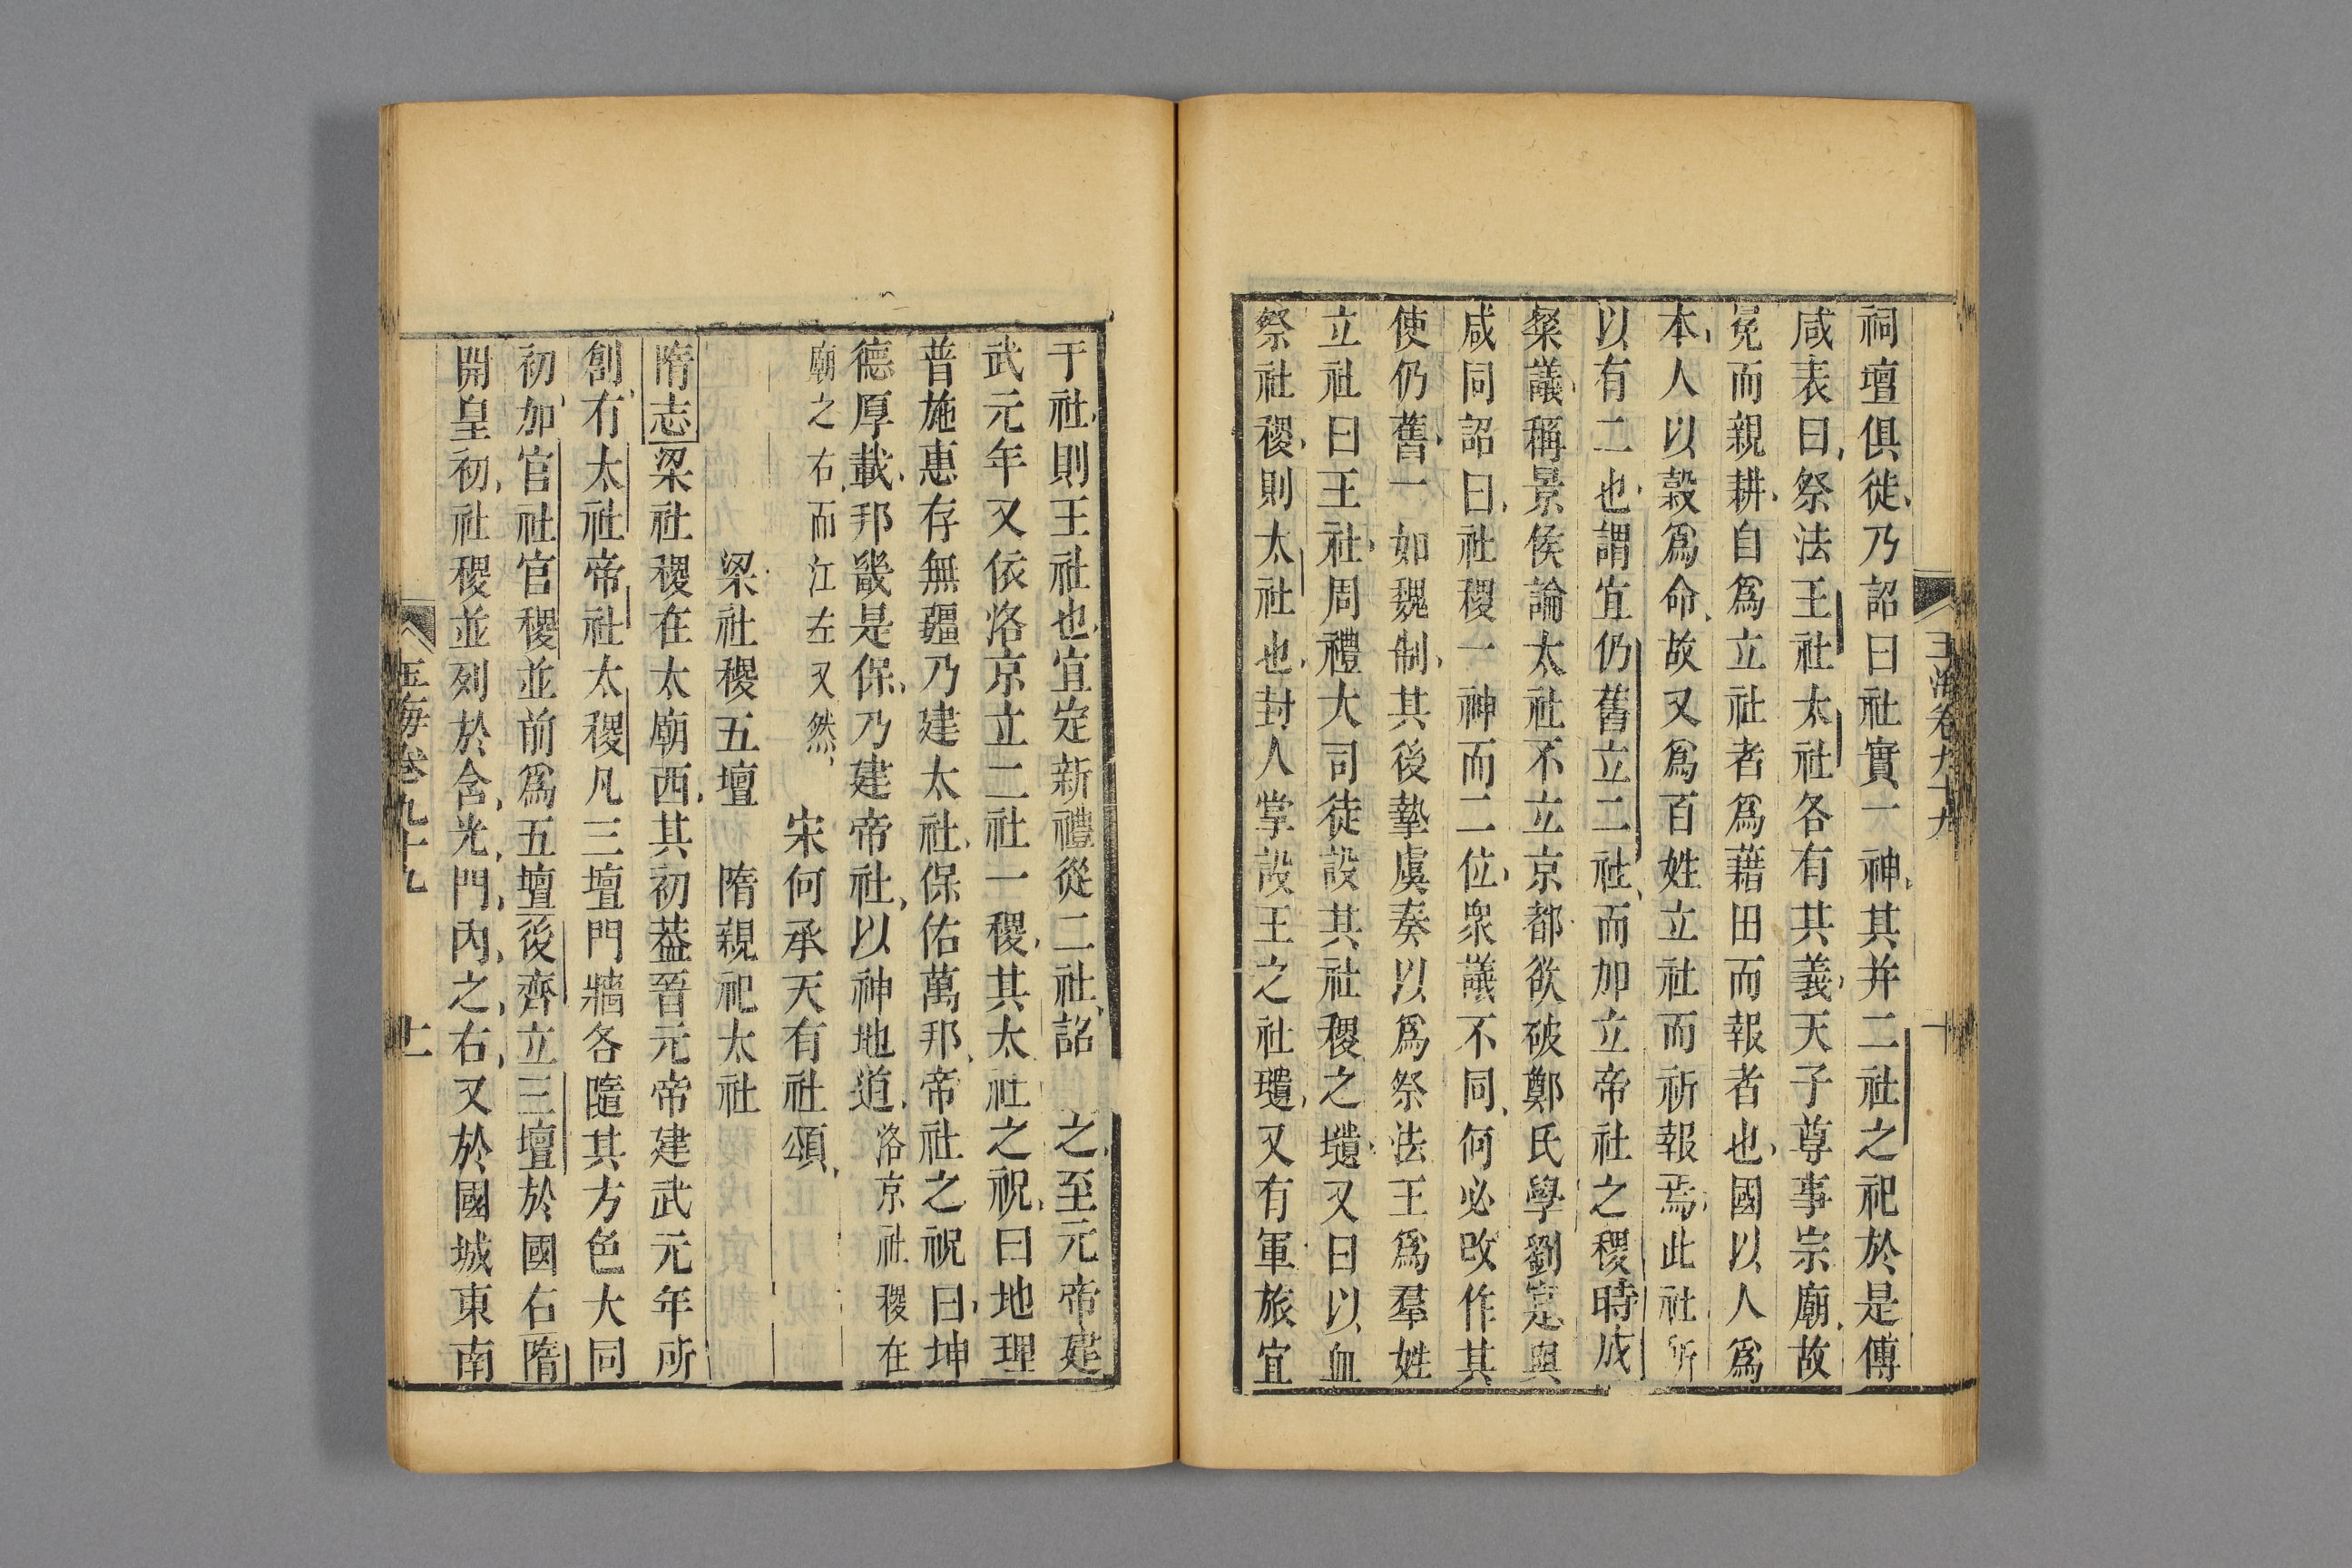 玉海卷九十九
十
祠壇俱徙乃詔曰社實一神其并二社之祀於是傅
咸表曰祭法王社太社各有其義天子尊事宗廟故
冕而親耕自爲立社者爲藉田而報者也國以人爲
本人以穀爲命故又爲百姓立社而祈報焉此社所
以有二也謂宜仍舊立二社而加立帝社之稷時成
粲議稱景侯論太社不立京都欲破鄭氏學劉寔與
咸同詔曰社稷一神而二位衆議不同何必改作其
使仍舊一如魏制其後摯虞奏以爲祭法王爲羣姓
立社曰王社周禮大司徒設其社稷之壝又曰以血
祭社稷則太社也封人掌設王之社壝又有軍旅宜
于社則王社也宜定新禮從二社詔之至元帝建
武元年又依洛京立二社一稷其太社之祝曰地理
普施惠存無疆乃建太社保佑萬邦帝社之祝曰坤
德厚載邦畿是保乃建帝社以神地道洛京社稷在
廟之右而江左又然 宋何承天有社頌
梁社稷五壇 隋親祀太社
隋志梁社稷在太廟西其初葢晉元帝建武元年所
創有太社帝社太稷凡三壇門牆各隨其方色大同
初加官社官稷並前爲五壇後齊立三壇於國右隋
開皇初社稷並列於含光門內之右又於國城東南
玉海卷九十九
十一